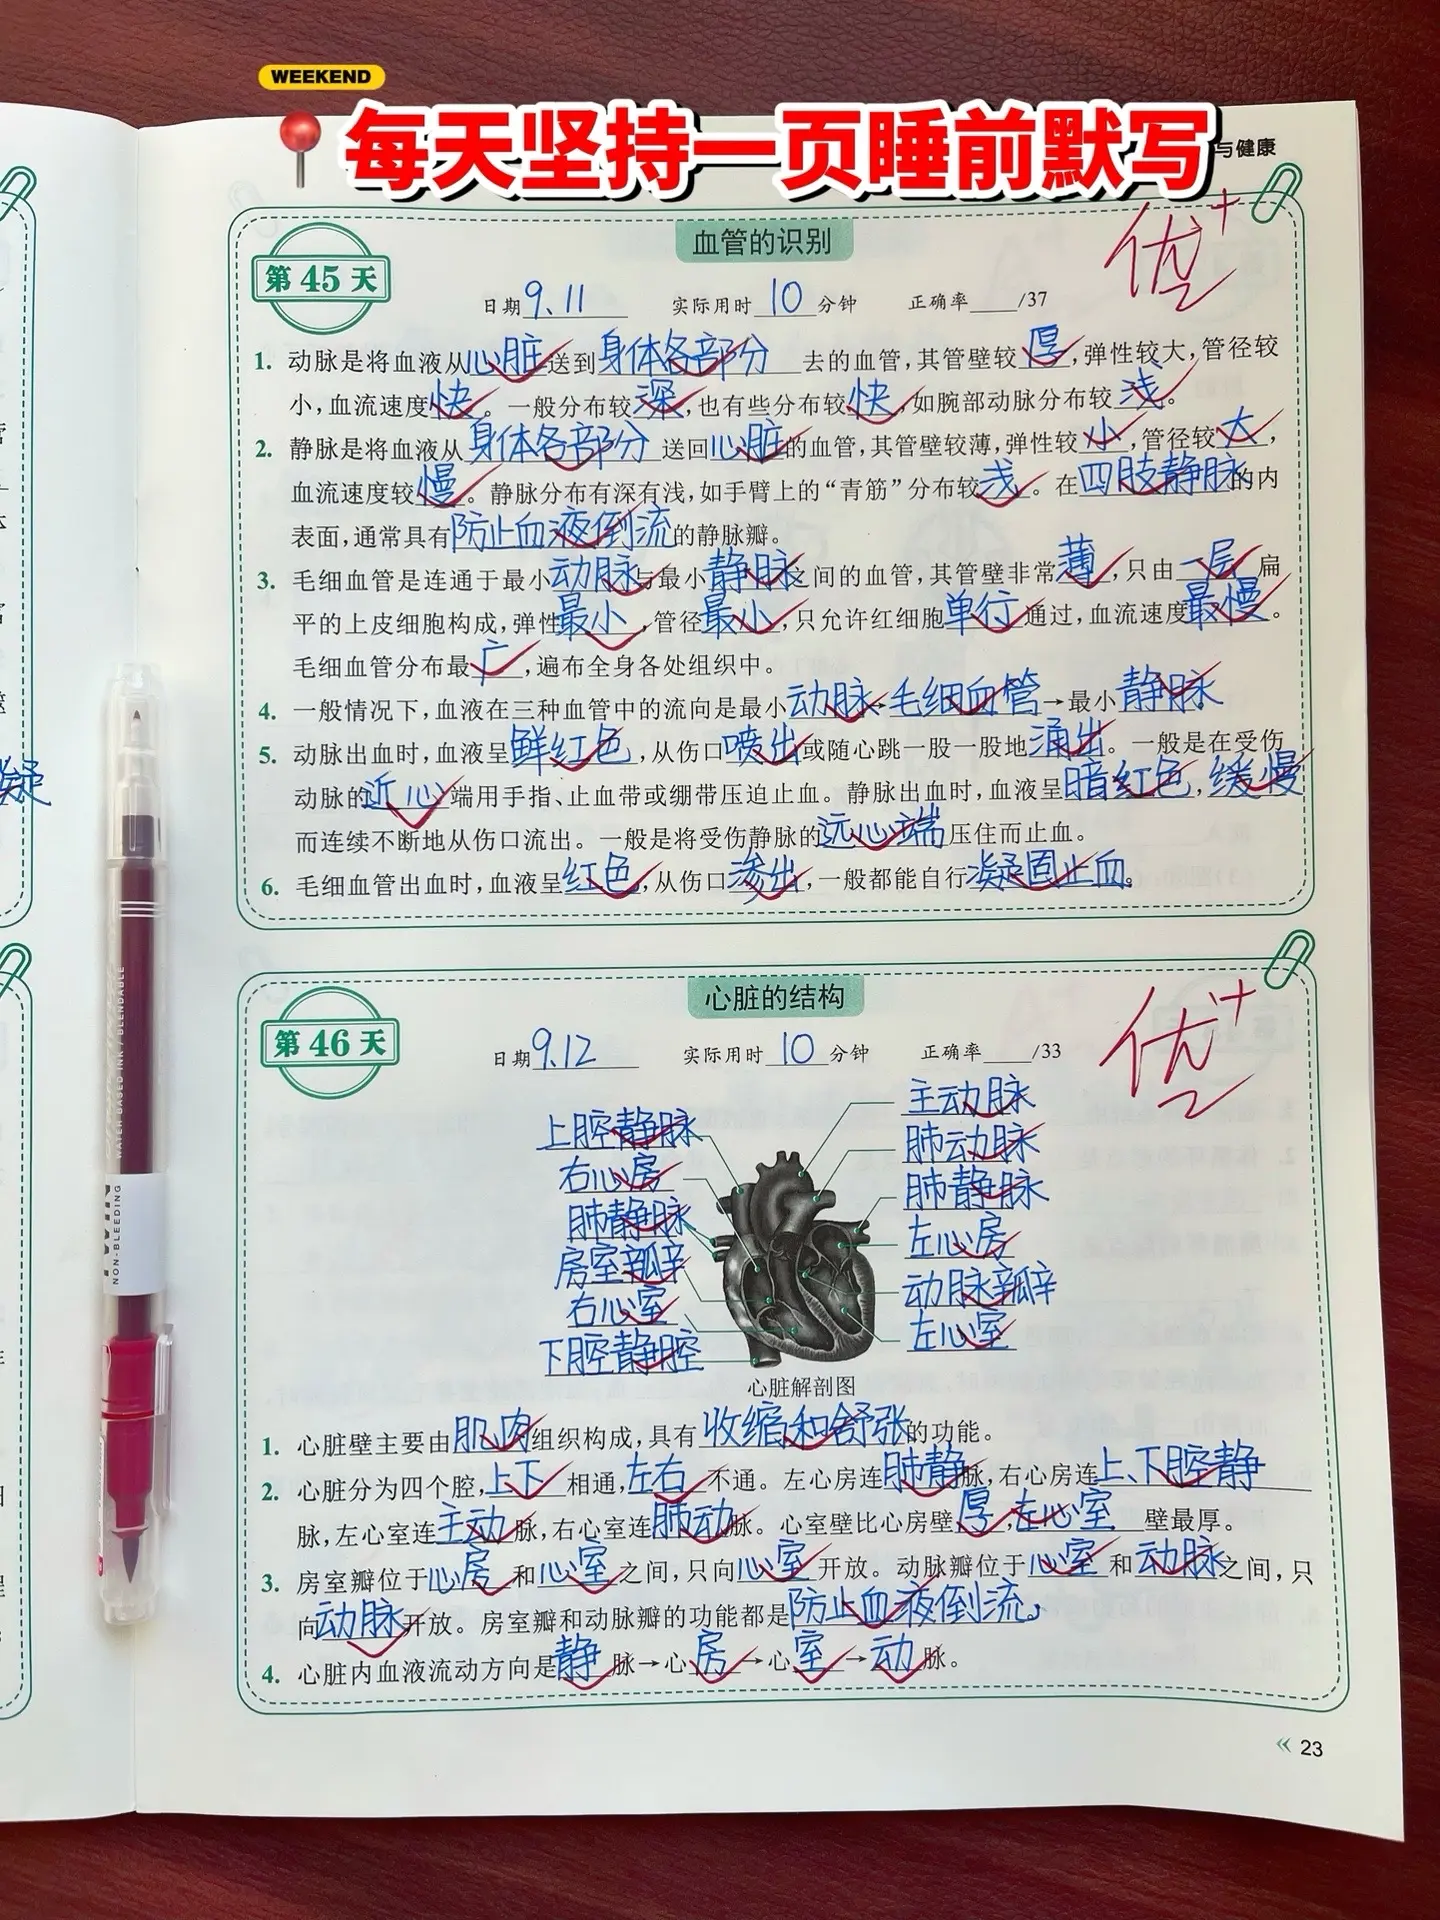 WEEKEND
📍每天坚持一页睡前默写
与健康
血管的识别
优+
第 45 天
日期 9.11 实际用时 10 分钟 正确率____/37
1. 动脉是将血液从心脏送到身体各部分去的血管,其管壁较厚,弹性较大,管径较
小,血流速度快。一般分布较深,也有些分布较快,如腕部动脉分布较浅。
2. 静脉是将血液从身体各部分送回心脏的血管,其管壁较薄,弹性较小,管径较大,
血流速度较慢。静脉分布有深有浅,如手臂上的“青筋”分布较浅。在四肢静脉的内
表面,通常具有防止血液倒流的静脉瓣。
3. 毛细血管是连通于最小动脉与最小静脉之间的血管,其管壁非常薄,只由一层扁
平的上皮细胞构成,弹性最小,管径最小,只允许红细胞单行通过,血流速度最慢。
毛细血管分布最广,遍布全身各处组织中。
4. 一般情况下,血液在三种血管中的流向是最小动脉→毛细血管→最小静脉
5. 动脉出血时,血液呈鲜红色,从伤口喷出或随心跳一股一股地涌出。一般是在受伤
动脉的近心端用手指、止血带或绷带压迫止血。静脉出血时,血液呈暗红色,缓慢
而连续不断地从伤口流出。一般是将受伤静脉的远心端压住而止血。
6. 毛细血管出血时,血液呈红色,从伤口渗出,一般都能自行凝固止血。
心脏的结构
优+
第 46 天
日期 9.12 实际用时 10 分钟 正确率____/33
上腔静脉
右心房
肺静脉
房室瓣
右心室
下腔静腔
主动脉
肺动脉
肺静脉
左心房
动脉瓣
左心室
心脏解剖图
1. 心脏壁主要由肌肉组织构成,具有收缩和舒张的功能。
2. 心脏分为四个腔,上下相通,左右不通。左心房连肺静脉,右心房连上、下腔静
脉,左心室连主动脉,右心室连肺动脉。心室壁比心房壁厚,左心室壁最厚。
3. 房室瓣位于心房和心室之间,只向心室开放。动脉瓣位于心室和动脉之间,只
向动脉开放。房室瓣和动脉瓣的功能都是防止血液倒流。
4. 心脏内血液流动方向是静脉→心房→心室→动脉。
23
凝
WATER BASED INK / BLENDABLE
NON-BLEEDING